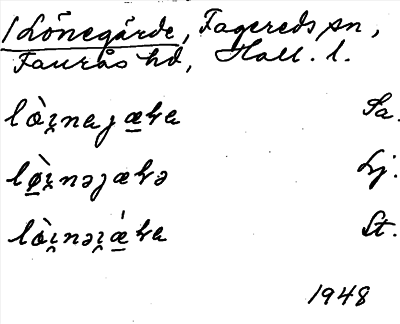 Lönegärde, Fagereds sn,
Faurås hd, Hall. l.
lò̤i̯naȷæ̠ꞧa Sa.
lø̠̀i̯nəȷæꞧə Lj.
lòi̯nəi̯ǽ̠ꞧa St.
1948